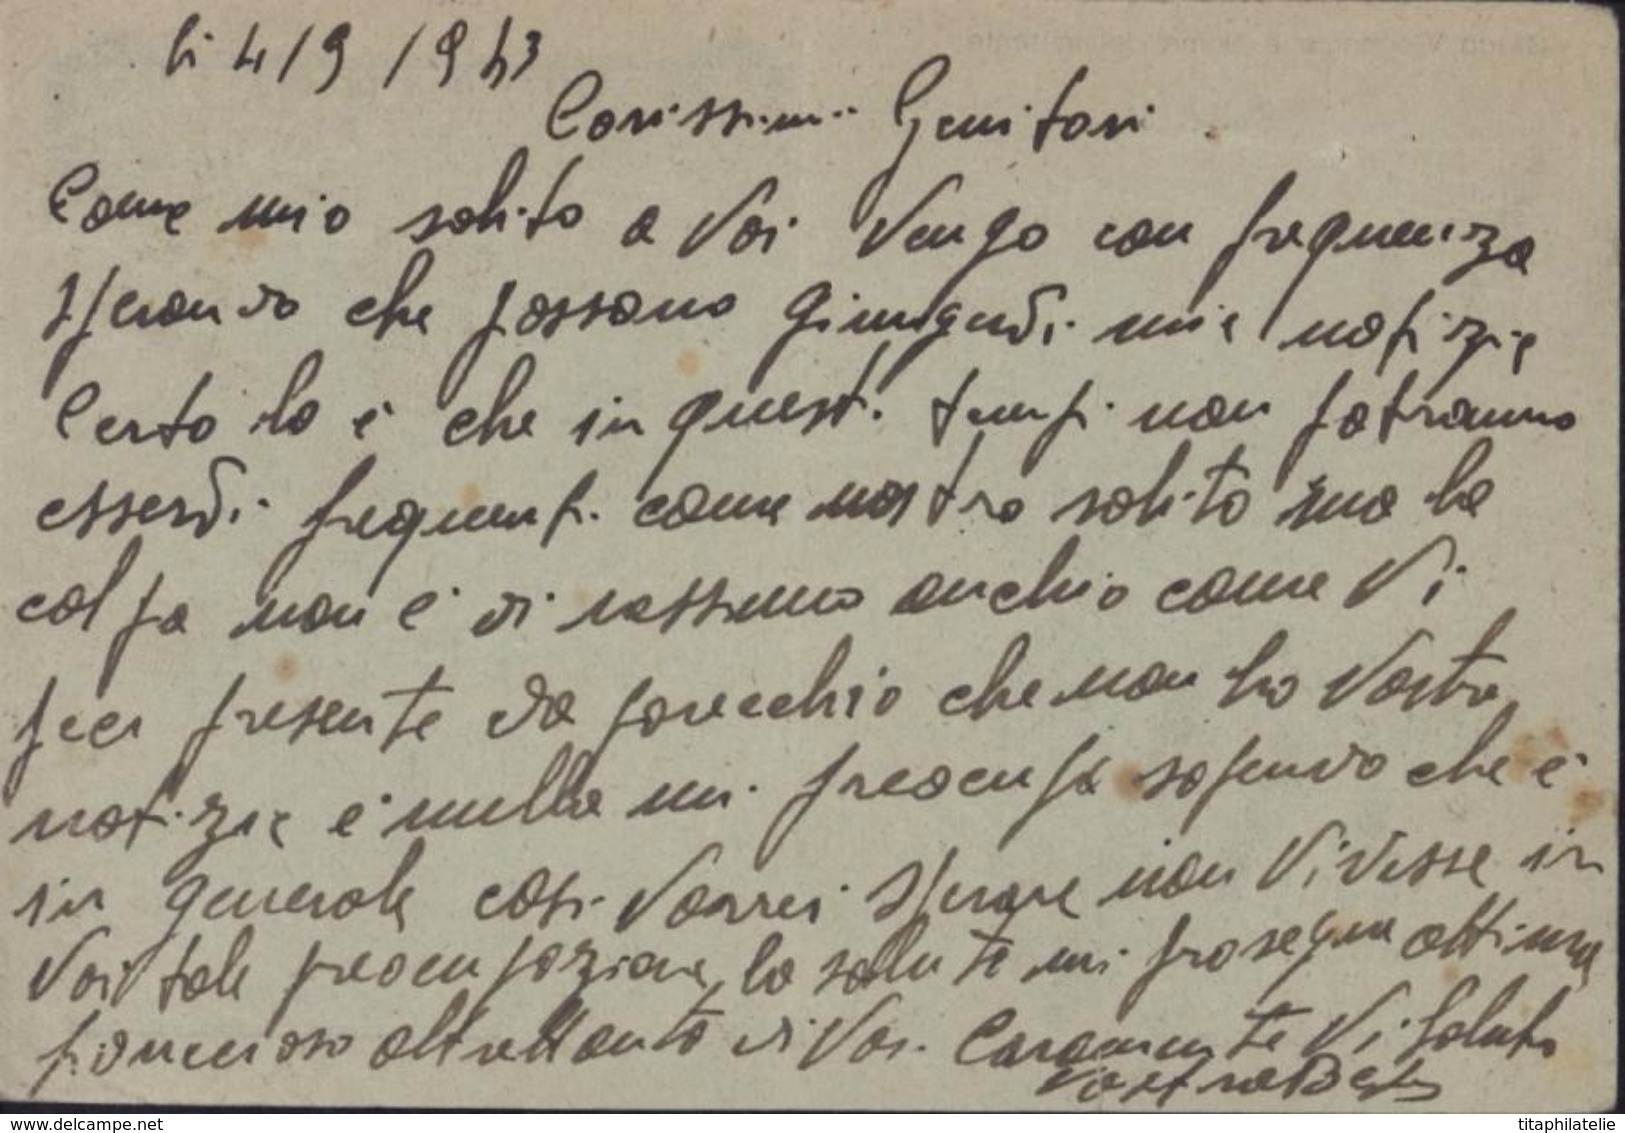 li 4/9/943
Carissimi Genitori
Come mio solito a Voi Vengo con frequenza
sperando che possano giungervi mie notizie
Certo lo è che in questi tempi non potranno
esservi frequenti come nostro solito ma la
colpa non è di nessuno anchio come Vi
feci presente da parecchio che non ho Vostre
notizie e nulla mi preocupa sapendo che è
in generale così Vorrei sperare non Vivesse in
Voi tale preocupazione, la salute mi prosegue ottima
fiducioso altrettanto di Voi. Caramente Vi Saluto
Vostro
www.delcampe.net
titaphilatelie